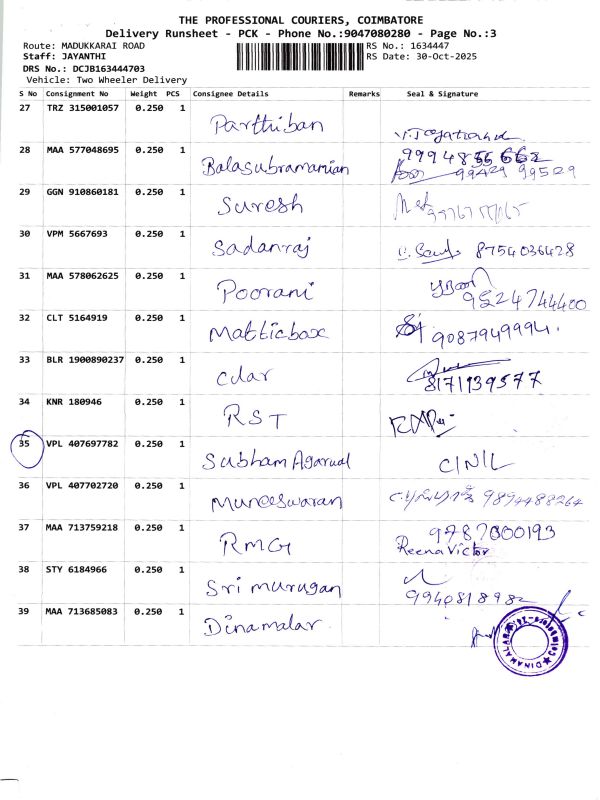 THE PROFESSIONAL COURIERS, COIMBATORE
Delivery Runsheet - PCK - Phone No.:9047080280 - Page No.:3
Route: MADUKKARAI ROAD
Staff: JAYANTHI
DRS No.: DCJB163444703
Vehicle: Two Wheeler Delivery
RS No.: 1634447
RS Date: 30-Oct-2025
S No Consignment No Weight PCS Consignee Details Remarks Seal & Signature
27 TRZ 315001057 0.250 1 Parthiban
28 MAA 577048695 0.250 1 Balasubramanian 99429 99529
29 GGN 910860181 0.250 1 Suresh
30 VPM 5667693 0.250 1 Sadanraj 8754036428
31 MAA 578062625 0.250 1 Poorani 9524744400
32 CLT 5164919 0.250 1 Matticbox 9087949994.
33 BLR 1900890237 0.250 1 Cdar 8171939577
34 KNR 180946 0.250 1 RST
35 VPL 407697782 0.250 1 Subham Agarwal
36 VPL 407702720 0.250 1 Muneeswaran 9894488264
37 MAA 713759218 0.250 1 RMG 9787000193
Reena Victor
38 STY 6184966 0.250 1 Sri murugan 9940818982
39 MAA 713685083 0.250 1 Dinamalar
DINAMALAR